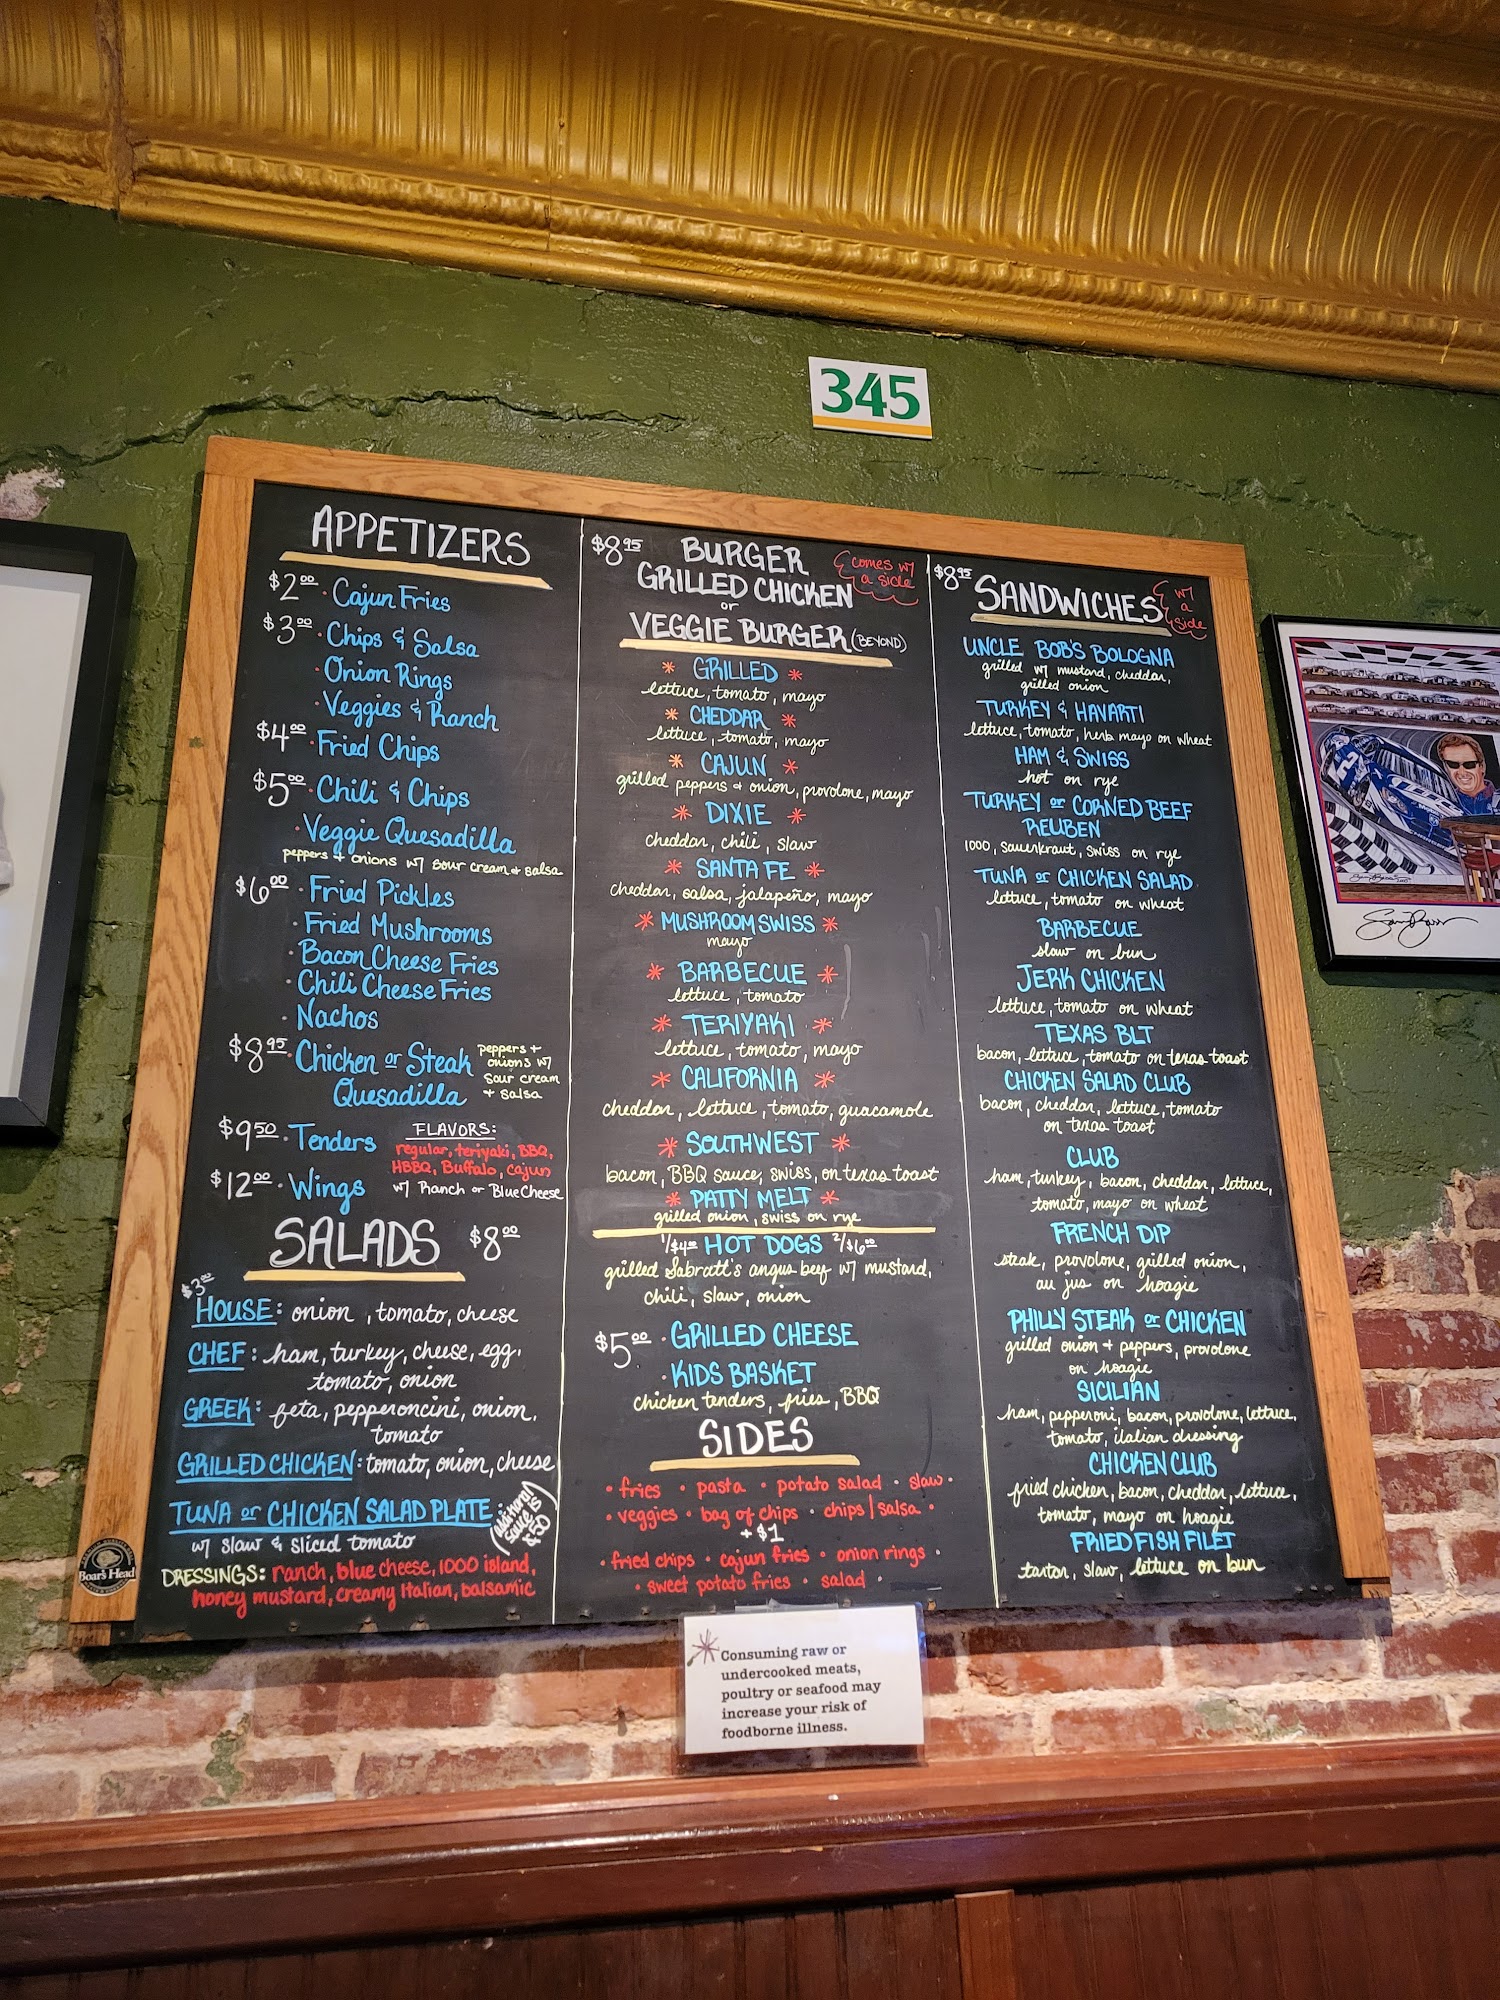 345
APPETIZERS
$2.00 · Cajun Fries
$3.00 · Chips & Salsa
· Onion Rings
· Veggies & Ranch
$4.00 · Fried Chips
$5.00 · Chili & Chips
· Veggie Quesadilla
peppers + onions w/ sour cream + salsa
$6.00 · Fried Pickles
· Fried Mushrooms
· Bacon Cheese Fries
· Chili Cheese Fries
· Nachos
$8.95 · Chicken or Steak
Quesadilla
peppers +
onions w/
sour cream
+ salsa
$9.50 · Tenders
$12.00 · Wings
FLAVORS:
regular, teriyaki, BBQ,
HBBQ, Buffalo, cajun
w/ Ranch or Blue Cheese
SALADS $8.00
$3.00
HOUSE: onion, tomato, cheese
CHEF: ham, turkey, cheese, egg,
tomato, onion
GREEK: feta, pepperoncini, onion,
tomato
GRILLED CHICKEN: tomato, onion, cheese
TUNA or CHICKEN SALAD PLATE
w/ slaw & sliced tomato
additional
sauce is
$.50
DRESSINGS: ranch, blue cheese, 1000 island,
honey mustard, creamy Italian, balsamic
Boar's Head
$8.95 BURGER
GRILLED CHICKEN
or
VEGGIE BURGER (BEYOND)
comes w/
a side
* GRILLED *
lettuce, tomato, mayo
* CHEDDAR *
lettuce, tomato, mayo
* CAJUN *
grilled peppers + onion, provolone, mayo
* DIXIE *
cheddar, chili, slaw
* SANTA FE *
cheddar, salsa, jalapeño, mayo
* MUSHROOM SWISS *
mayo
* BARBECUE *
lettuce, tomato
* TERIYAKI *
lettuce, tomato, mayo
* CALIFORNIA *
cheddar, lettuce, tomato, guacamole
* SOUTHWEST *
bacon, BBQ sauce, swiss, on texas toast
* PATTY MELT *
grilled onion, swiss on rye
1/$4.00 HOT DOGS 2/$6.00
grilled Sabrett's angus beef w/ mustard,
chili, slaw, onion
$5.00 · GRILLED CHEESE
· KIDS BASKET
chicken tenders, fries, BBQ
SIDES
· fries · pasta · potato salad · slaw ·
· veggies · bag of chips · chips/salsa ·
+ $1
· fried chips · cajun fries · onion rings ·
· sweet potato fries · salad ·
$8.95 SANDWICHES
w/
a
side
UNCLE BOB'S BOLOGNA
grilled w/ mustard, cheddar,
grilled onion
TURKEY & HAVARTI
lettuce, tomato, herb mayo on wheat
HAM & SWISS
hot on rye
TURKEY or CORNED BEEF
REUBEN
1000, sauerkraut, swiss on rye
TUNA or CHICKEN SALAD
lettuce, tomato on wheat
BARBECUE
slaw on bun
JERK CHICKEN
lettuce, tomato on wheat
TEXAS BLT
bacon, lettuce, tomato on texas toast
CHICKEN SALAD CLUB
bacon, cheddar, lettuce, tomato
on texas toast
CLUB
ham, turkey, bacon, cheddar, lettuce,
tomato, mayo on wheat
FRENCH DIP
steak, provolone, grilled onion,
au jus on hoagie
PHILLY STEAK or CHICKEN
grilled onion + peppers, provolone
on hoagie
SICILIAN
ham, pepperoni, bacon, provolone, lettuce,
tomato, italian dressing
CHICKEN CLUB
fried chicken, bacon, cheddar, lettuce,
tomato, mayo on hoagie
FRIED FISH FILET
tartar, slaw, lettuce on bun
Consuming raw or
undercooked meats,
poultry or seafood may
increase your risk of
foodborne illness.